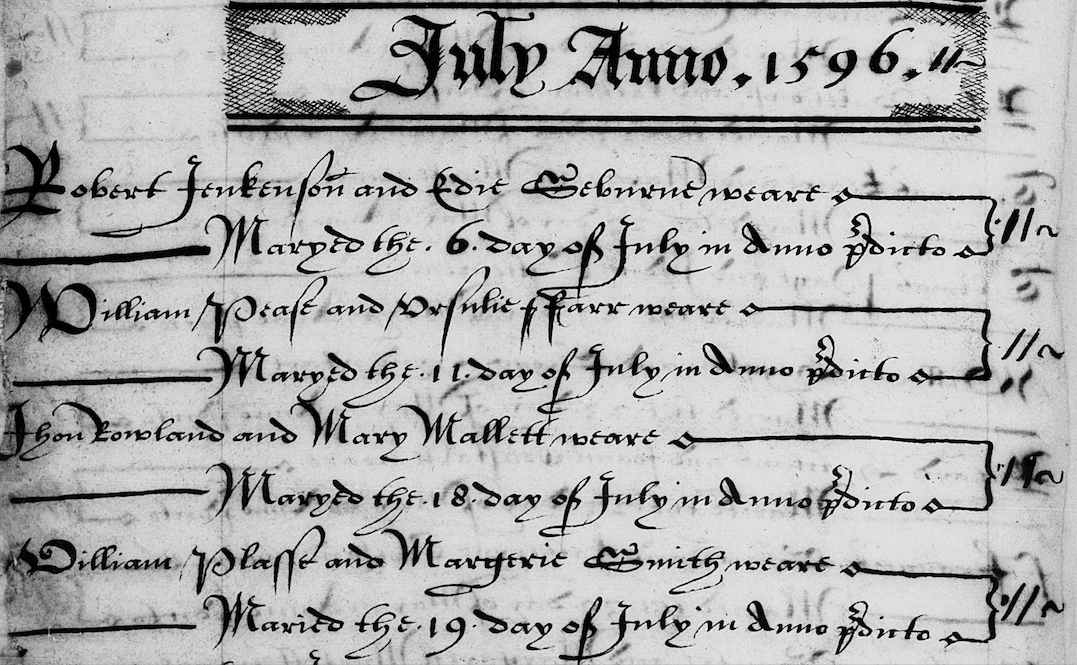 July Anno. 1596.
Robert Jenkenson and Edie Seburne weare
Maryed the. 6. day of July in Anno p̃dicto
William Pease and Ursulie ffarr weare
Maryed the. 11. day of July in Anno p̃dicto
Jhon Rowland and Mary Mallett weare
Maryed the. 18. day of July in Anno p̃dicto
William Plasse and Margerie Smith weare
Maried the. 19. day of July in Anno p̃dicto